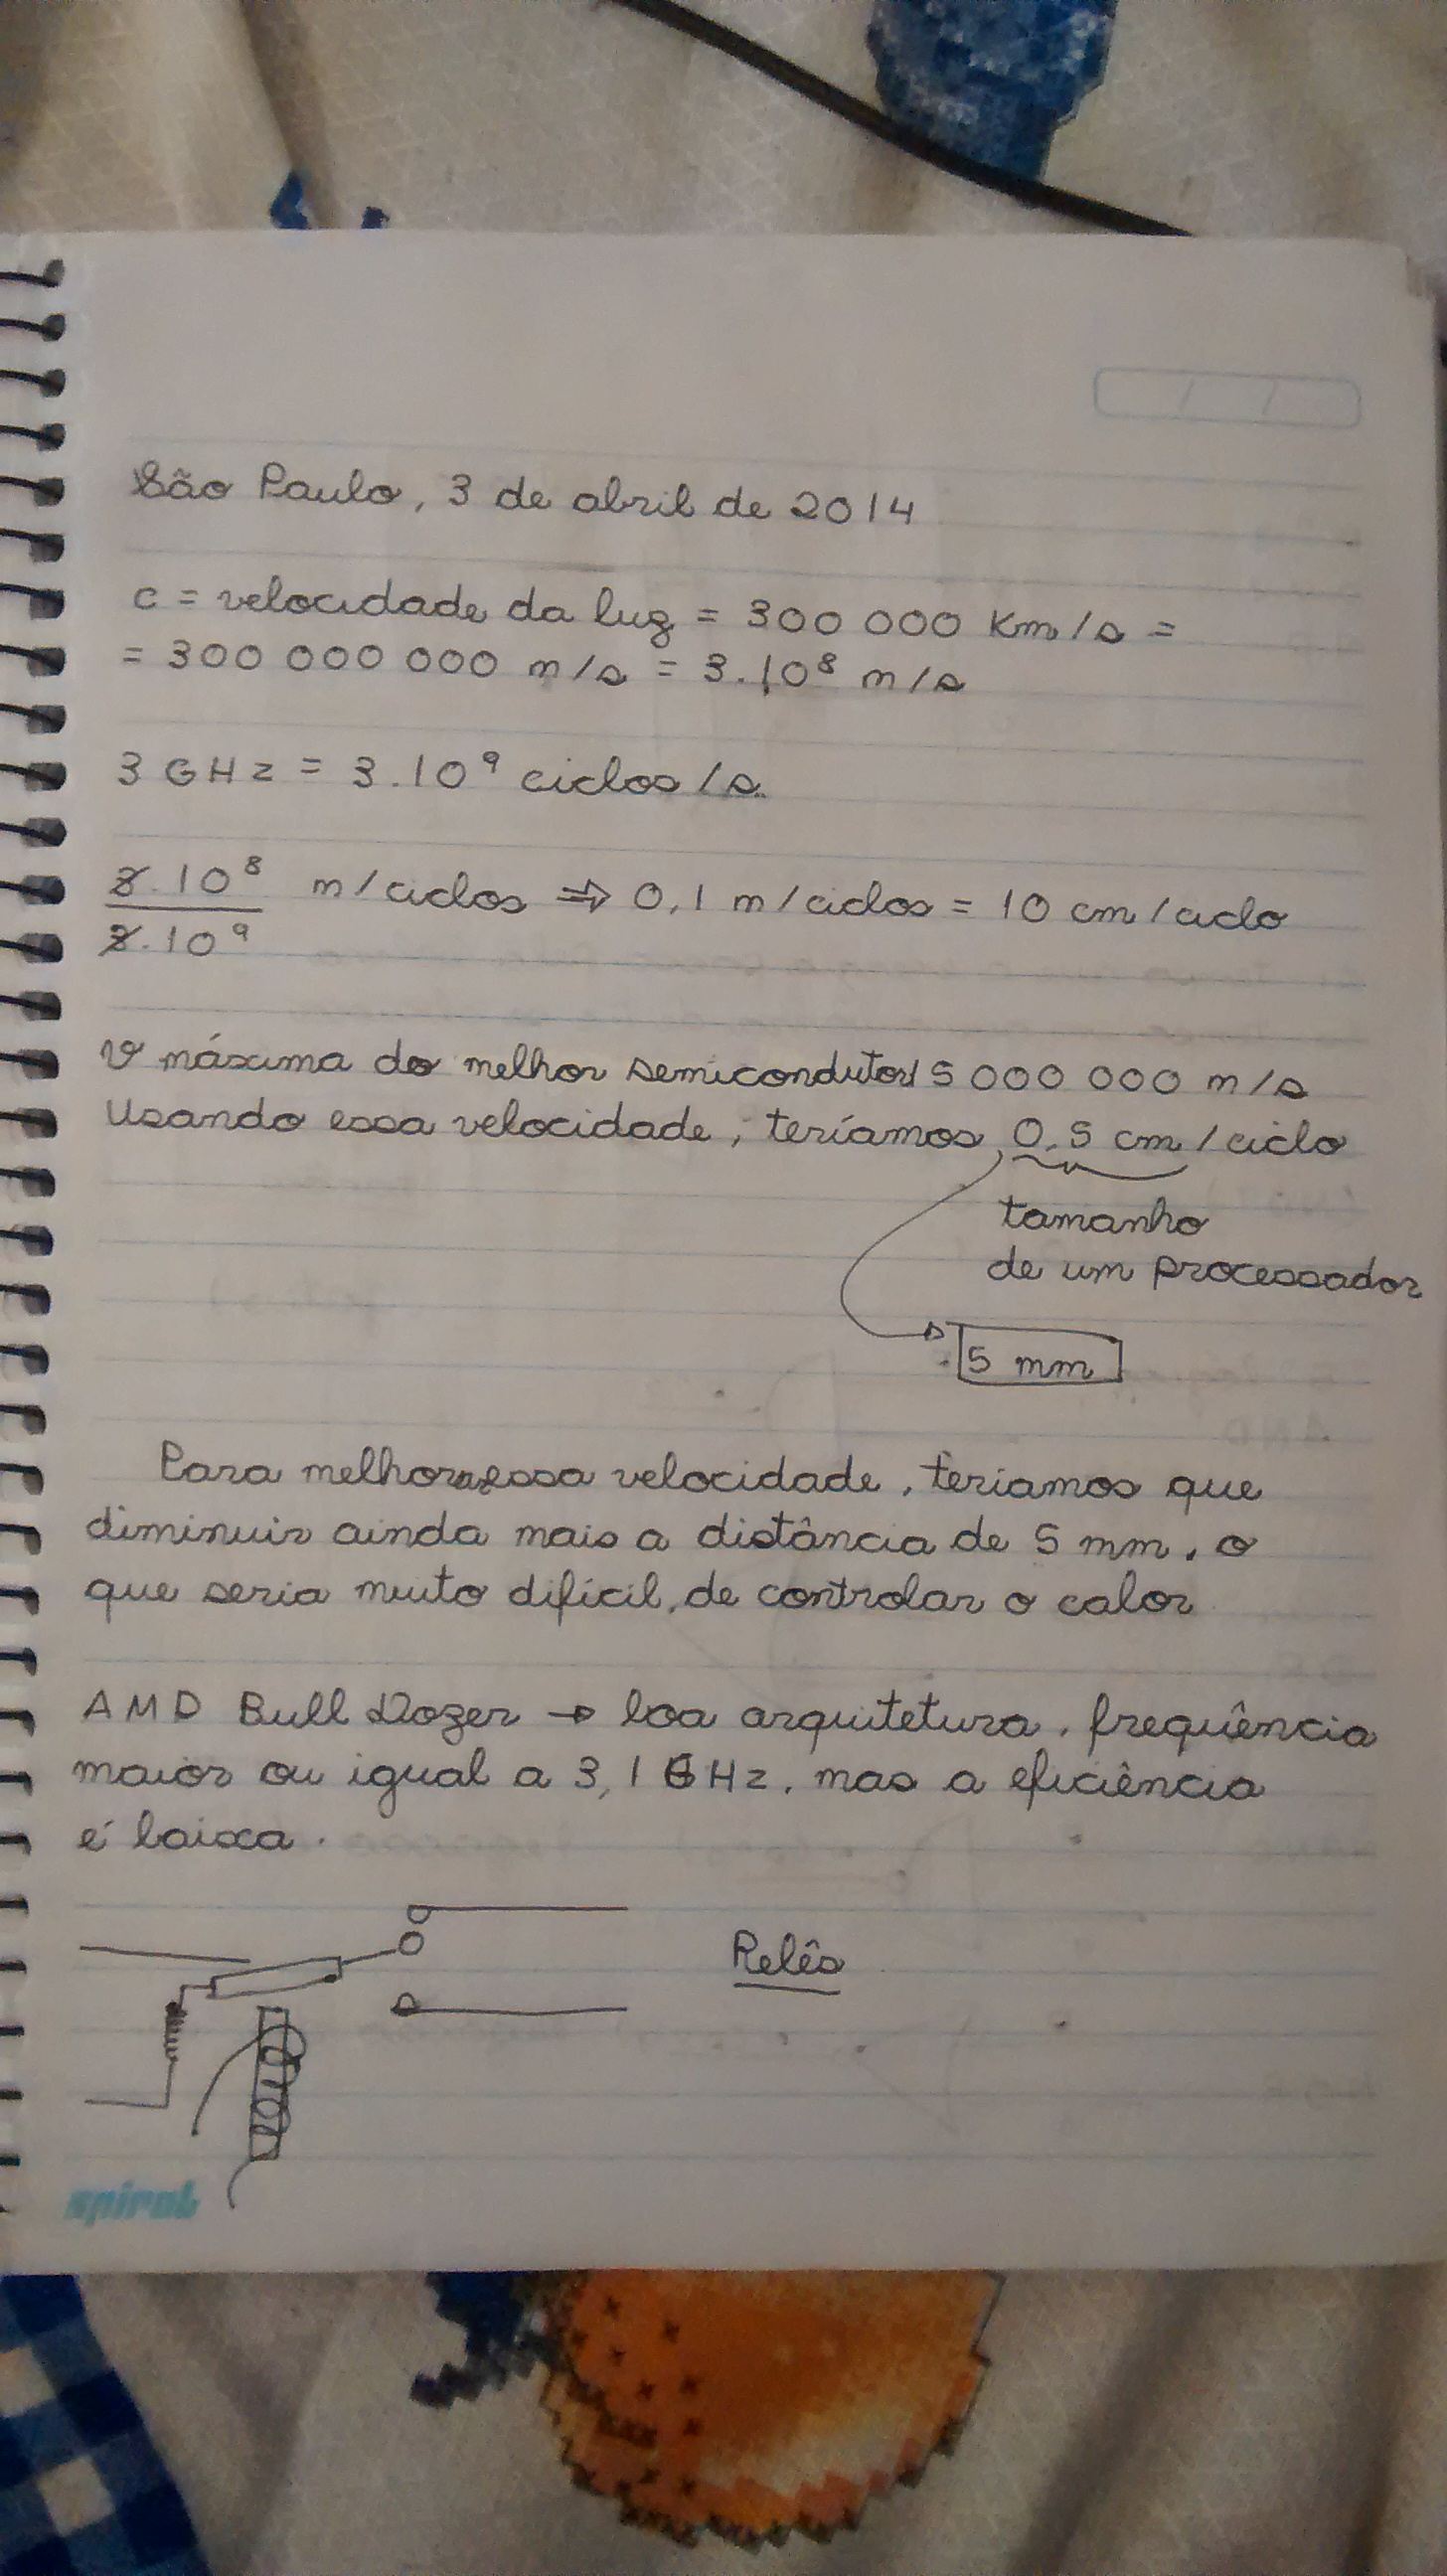 São Paulo, 3 de abril de 2014
c = velocidade da luz = 300 000 Km/s =
= 300 000 000 m/s = 3.10⁸ m/s
3 GHz = 3.10⁹ ciclos/s.
3.10⁸ / 3.10⁹ m/ciclos ⇒ 0,1 m/ciclos = 10 cm/ciclo
v máxima do melhor semicondutor 15 000 000 m/s
Usando essa velocidade, teríamos 0,5 cm/ciclo
tamanho
de um processador
5 mm
Para melhorar essa velocidade, teriamos que
diminuir ainda mais a distância de 5 mm, o
que seria muito difícil, de controlar o calor
AMD Bull Dozer → boa arquitetura, frequência
maior ou igual a 3,1 GHz, mas a eficiência
é baixa.
Relês
spiral